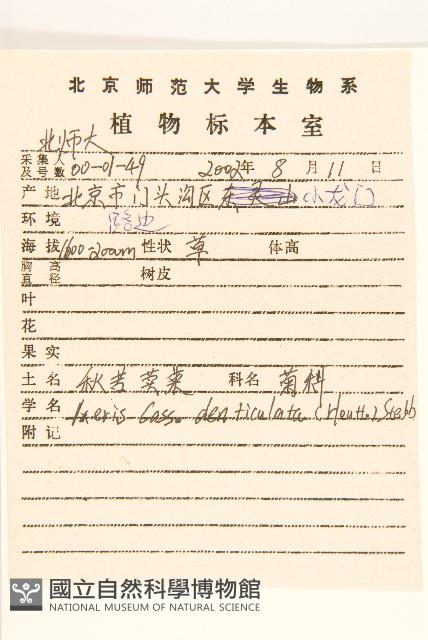 北京师范大学生物系
植物标本室
北师大
采集人及号数 00-01-49 2002年 8月 11日
产地 北京市门头沟区 小龙门
环境 路边
海拔 1600-200m 性状 草 体高
胸高直径 树皮
叶
花
果实
土名 秋苦荬菜 科名 菊科
学名 Ixeris Cass. denticulata (Houtt.) Stebb
附记
國立自然科學博物館
NATIONAL MUSEUM OF NATURAL SCIENCE